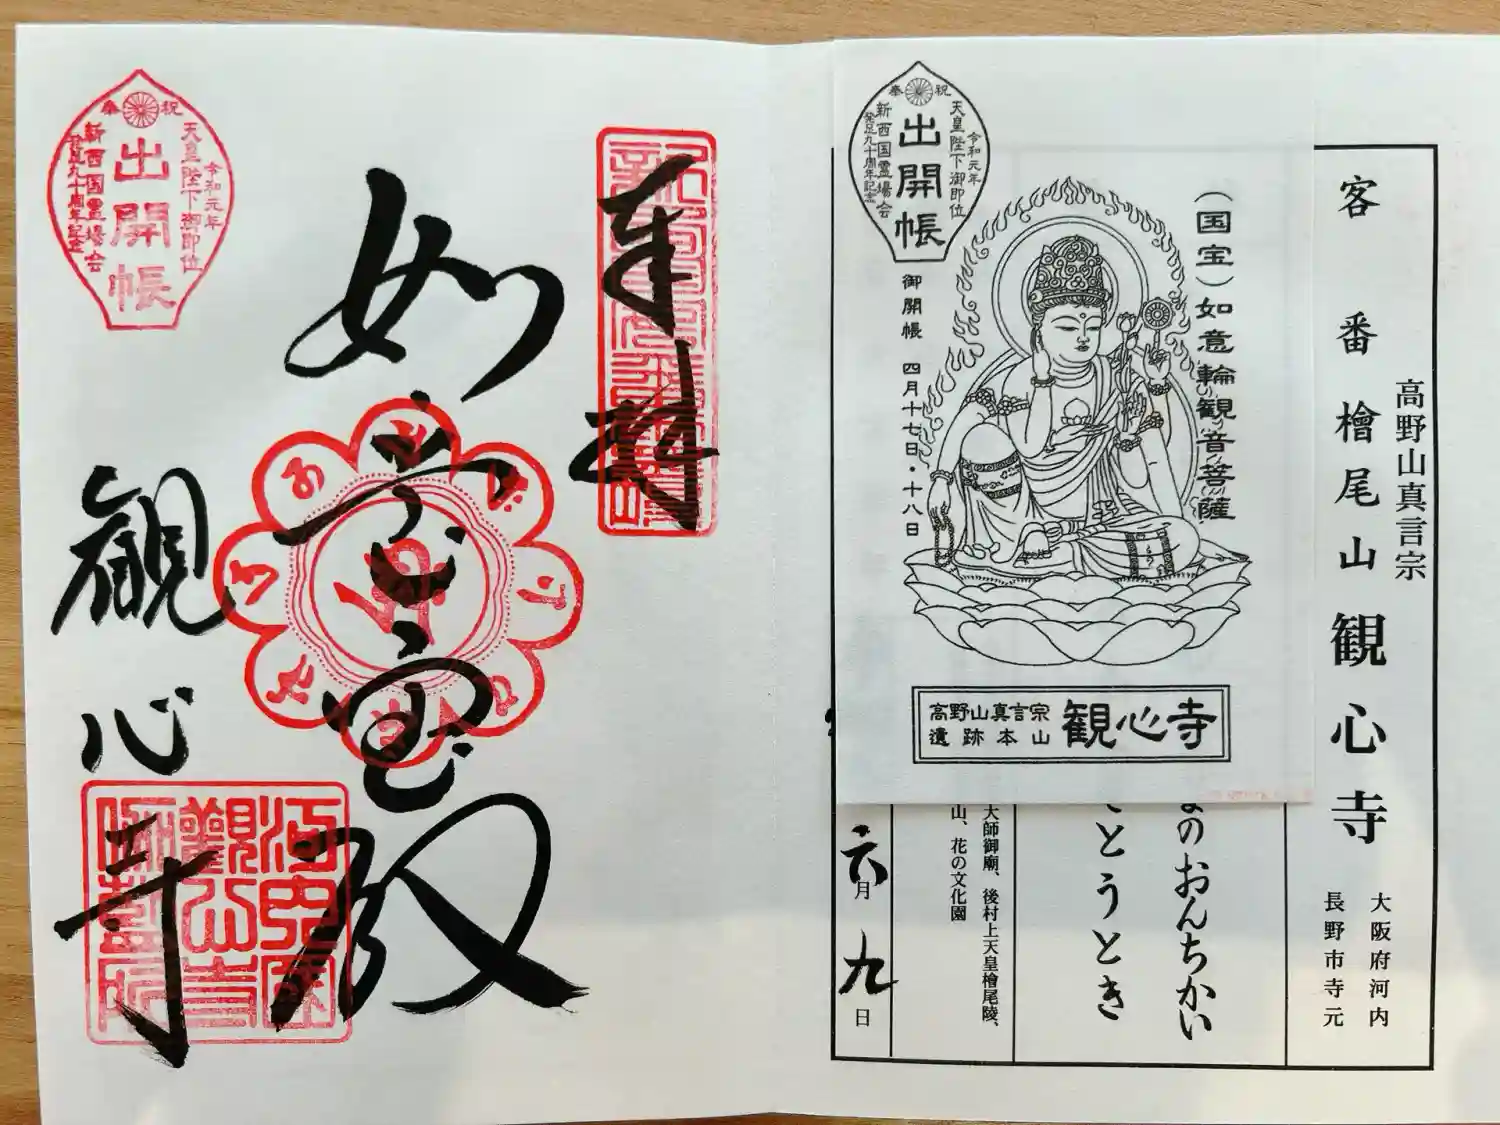 客番 檜尾山 観心寺
高野山真言宗
大阪府河内
長野市寺元
のおんちかい
とうとき
大師御廟、後村上天皇檜尾陵、
山、花の文化園
六月九日
(国宝)如意輪観音菩薩
奉祝
令和元年
天皇陛下御即位
出開帳
新西国霊場会
発足九十周年記念
御開帳 四月十七日・十八日
高野山真言宗
遺跡本山
観心寺
奉拝
如意宝殿
観心寺
奉祝
令和元年
天皇陛下御即位
出開帳
新西国霊場会
発足九十周年記念